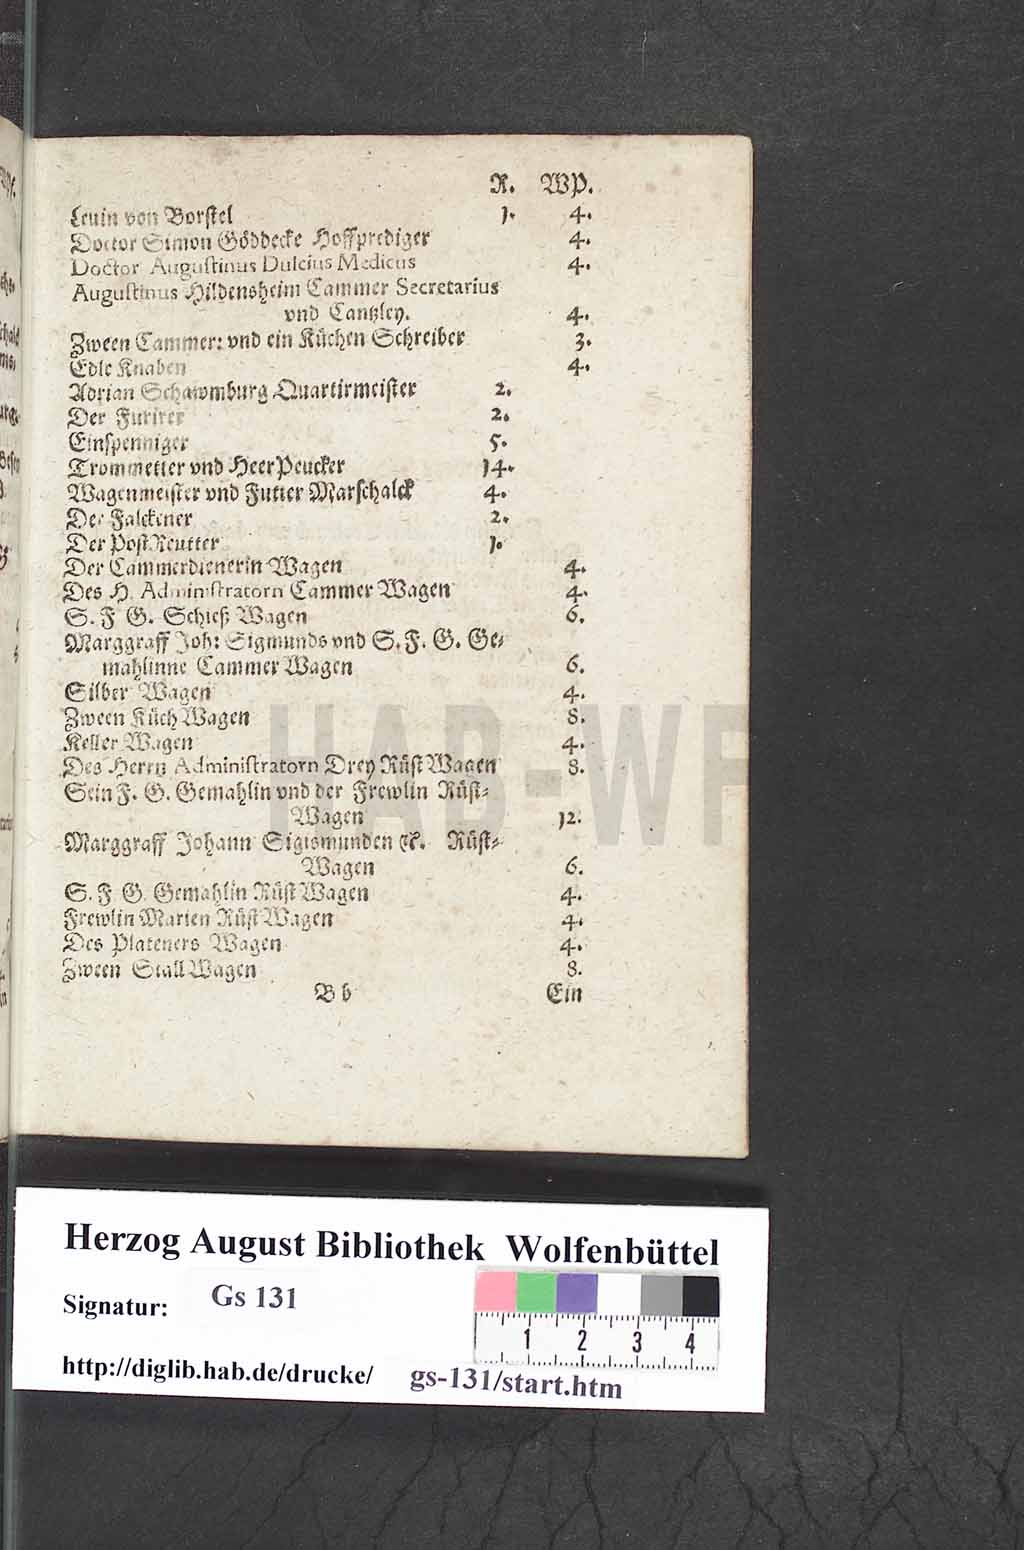 R. WP.
Leuin von Borstel 1. 4.
Doctor Simon Göddecke Hoffprediger 4.
Doctor Augustinus Dulcius Medicus 4.
Augustinus Hildensheim Cammer Secretarius
vnd Cantzley. 4.
Zween Cammer: vnd ein Küchen Schreiber 3.
Edle Knaben 4.
Adrian Schawmburg Quartirmeister 2.
Der Furirer 2.
Einspenniger 5.
Trommetter vnd HeerPeucker 14.
Wagenmeister vnd Futter Marschalck 4.
Der Falckener 2.
Der PostReutter 1.
Der Cammerdienerin Wagen 4.
Des H. Administratorn Cammer Wagen 4.
S. F G. Schieß Wagen 6.
Marggraff Joh: Sigmunds vnd S. F. G. Ge-
mahlinne Cammer Wagen 6.
Silber Wagen 4.
Zween Küch Wagen 8.
Keller Wagen 4.
Des Herrn Administratorn Drey Rüst Wagen 8.
Sein F. G. Gemahlin vnd der Frewlin Rüst-
Wagen 12.
Marggraff Johann Sigismunden &c. Rüst-
Wagen 6.
S. F G. Gemahlin Rüst Wagen 4.
Frewlin Marien Rüst Wagen 4.
Des Plateners Wagen 4.
Zween Stall Wagen 8.
B b Ein
HAB-WF
Herzog August Bibliothek Wolfenbüttel
Signatur: Gs 131
1 2 3 4
http://diglib.hab.de/drucke/ gs-131/start.htm